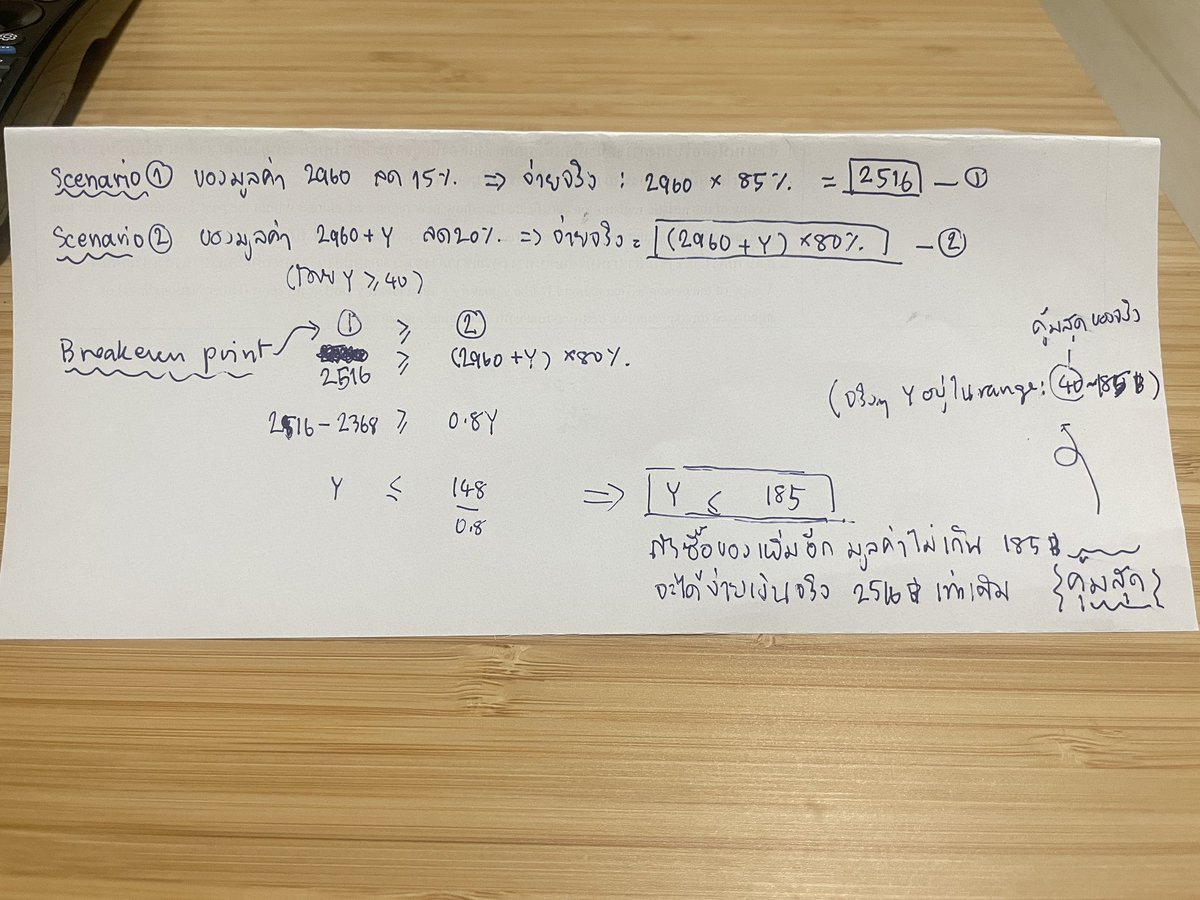 Scenario ① ของมูลค่า 2960 ลด 15% ⇒ จ่ายจริง : 2960 × 85% = 2516 — ①
Scenario ② ของมูลค่า 2960+Y ลด 20% ⇒ จ่ายจริง = (2960 + Y) × 80% — ②
(โดย Y ≥ 40)
Breakeven point → ① ≥ ②
2516 ≥ (2960 + Y) × 80%
2516 – 2368 ≥ 0.8Y
Y ≤ 148/0.8 ⇒ Y ≤ 185
คุ้มสุดของจริง
(จริงๆ Y อยู่ใน range: 40-185฿)
ถ้าซื้อของเพิ่มอีก มูลค่าไม่เกิน 185฿
จะได้จ่ายเงินจริง 2516฿ เท่าเดิม {คุ้มสุด}